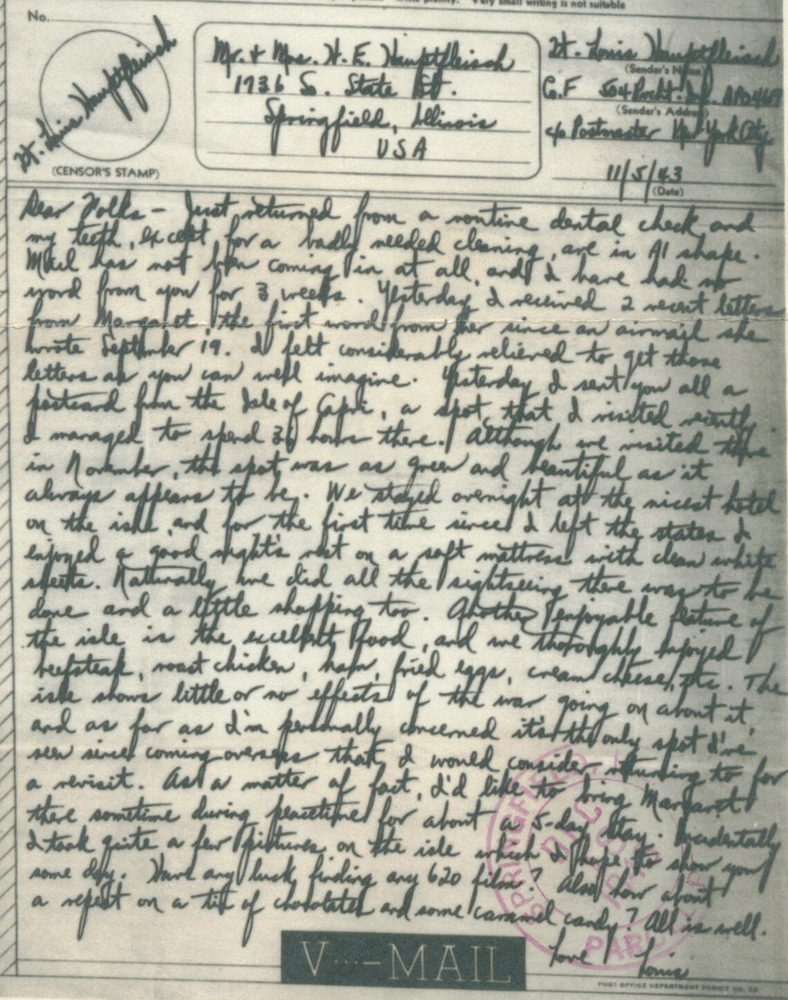 Very small writing is not suitable
No.
Lt. Louis Hauptfleisch
(CENSOR'S STAMP)
Mr. + Mrs. H. E. Hauptfleisch
1736 S. State St.
Springfield, Illinois
USA
Lt. Louis Hauptfleisch
(Sender's Name)
Co. F 504 Prcht. Inf. APO 469
(Sender's Address)
c/o Postmaster New York City
11/5/43
(Date)
Dear Folks - Just returned from a routine dental check and
my teeth, except for a badly needed cleaning, are in A1 shape.
Mail has not been coming in at all, and I have had no
word from you for 3 weeks. Yesterday I received 2 recent letters
from Margaret, the first word from her since an airmail she
wrote September 19. I felt considerably relieved to get those
letters as you can well imagine. Yesterday I sent you all a
postcard from the Isle of Capri, a spot that I visited recently.
I managed to spend 36 hours there. Although we visited there
in November, the spot was as green and beautiful as it
always appears to be. We stayed overnight at the nicest hotel
on the isle, and for the first time since I left the states I
enjoyed a good night's rest on a soft mattress with clean white
sheets. Naturally we did all the sightseeing there was to be
done and a little shopping too. Another enjoyable feature of
the isle is the excellent food, and we thoroughly enjoyed
beefsteak, roast chicken, ham, fried eggs, cream cheese, etc. The
isle shows little or no effects of the war going on about it,
and as far as I'm personally concerned it's the only spot I've
seen since coming overseas that I would consider returning to for
a revisit. As a matter of fact, I'd like to bring Margaret
there sometime during peacetime for about a 5-day stay. Incidentally
I took quite a few pictures on the isle which I hope to show you
some day. Have any luck finding any 620 film? Also how about
a repeat on a tin of chocolates and some caramel candy? All is well.
Love
Louis
V···–MAIL
POST OFFICE DEPARTMENT PERMIT NO.